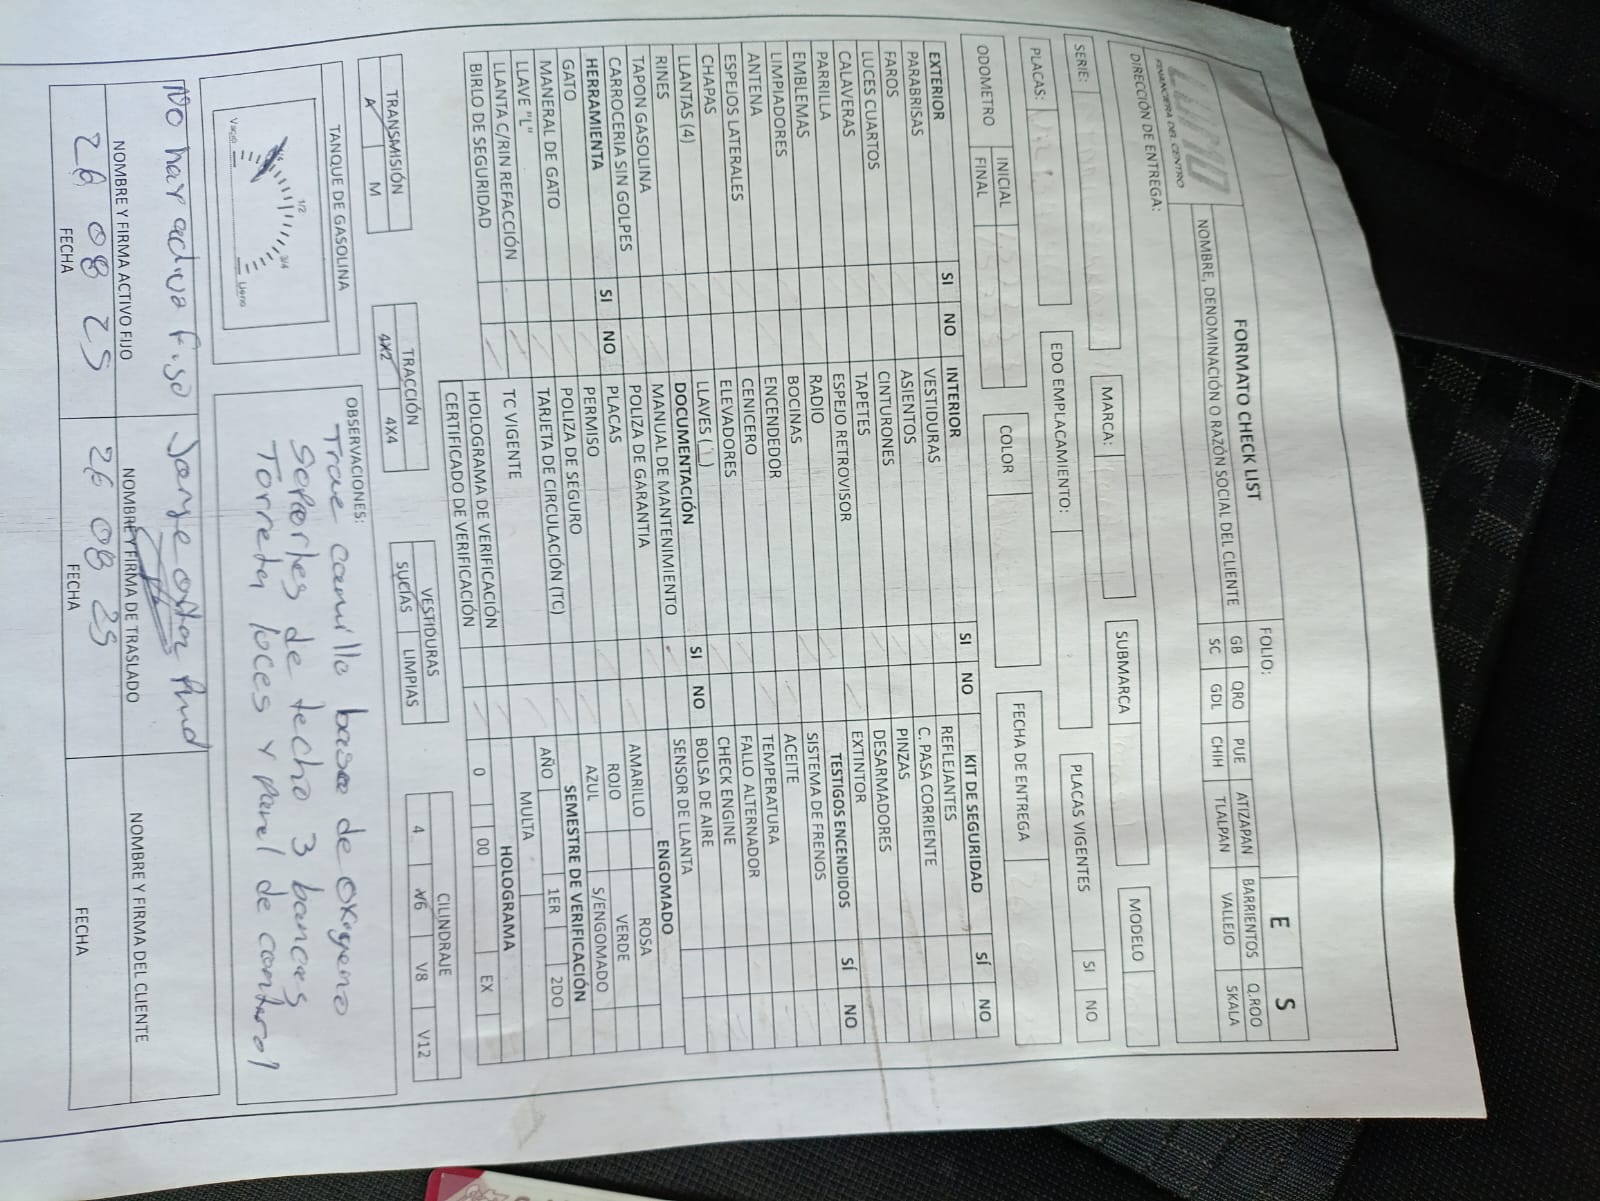 FORMATO CHECK LIST
FOLIO:
E S
FINANCIERA DEL CENTRO
NOMBRE, DENOMINACIÓN O RAZÓN SOCIAL DEL CLIENTE
GB QRO PUE ATIZAPAN BARRIENTOS Q.ROO
SC GDL CHIH TLALPAN VALLEJO SKALA
DIRECCIÓN DE ENTREGA:
SERIE: MARCA: SUBMARCA MODELO
PLACAS: EDO EMPLACAMIENTO: PLACAS VIGENTES SI NO
ODOMETRO INICIAL COLOR FECHA DE ENTREGA
FINAL
EXTERIOR SI NO INTERIOR SI NO KIT DE SEGURIDAD SÍ NO
PARABRISAS VESTIDURAS REFLEJANTES
FAROS ASIENTOS C. PASA CORRIENTE
LUCES CUARTOS CINTURONES PINZAS
CALAVERAS TAPETES DESARMADORES
PARRILLA ESPEJO RETROVISOR EXTINTOR
EMBLEMAS RADIO TESTIGOS ENCENDIDOS SÍ NO
LIMPIADORES BOCINAS SISTEMA DE FRENOS
ANTENA ENCENDEDOR ACEITE
ESPEJOS LATERALES CENICERO TEMPERATURA
CHAPAS ELEVADORES FALLO ALTERNADOR
LLANTAS (4) LLAVES (1) CHECK ENGINE
RINES DOCUMENTACIÓN SI NO BOLSA DE AIRE
TAPON GASOLINA MANUAL DE MANTENIMIENTO SENSOR DE LLANTA
CARROCERIA SIN GOLPES POLIZA DE GARANTIA ENGOMADO
HERRAMIENTA SI NO PLACAS AMARILLO ROSA
GATO PERMISO ROJO VERDE
MANERAL DE GATO POLIZA DE SEGURO AZUL S/ENGOMADO
LLAVE "L" TARJETA DE CIRCULACIÓN (TC) SEMESTRE DE VERIFICACIÓN
LLANTA C/RIN REFACCIÓN TC VIGENTE AÑO 1ER 2DO
BIRLO DE SEGURIDAD HOLOGRAMA DE VERIFICACIÓN MULTA
CERTIFICADO DE VERIFICACIÓN HOLOGRAMA
0 00 EX
TRANSMISIÓN TRACCIÓN VESTIDURAS CILINDRAJE
A M 4X2 4X4 SUCIAS LIMPIAS 4 V6 V8 V12
TANQUE DE GASOLINA
1/2
3/4
Vacio Lleno
OBSERVACIONES:
Trae camilla base de oxigeno
Soportes de techo 3 bancas
Torreta loces y panel de control
No hay activo fijo
NOMBRE Y FIRMA ACTIVO FIJO NOMBRE Y FIRMA DE TRASLADO NOMBRE Y FIRMA DEL CLIENTE
26 08 25 26 08 25
FECHA FECHA FECHA